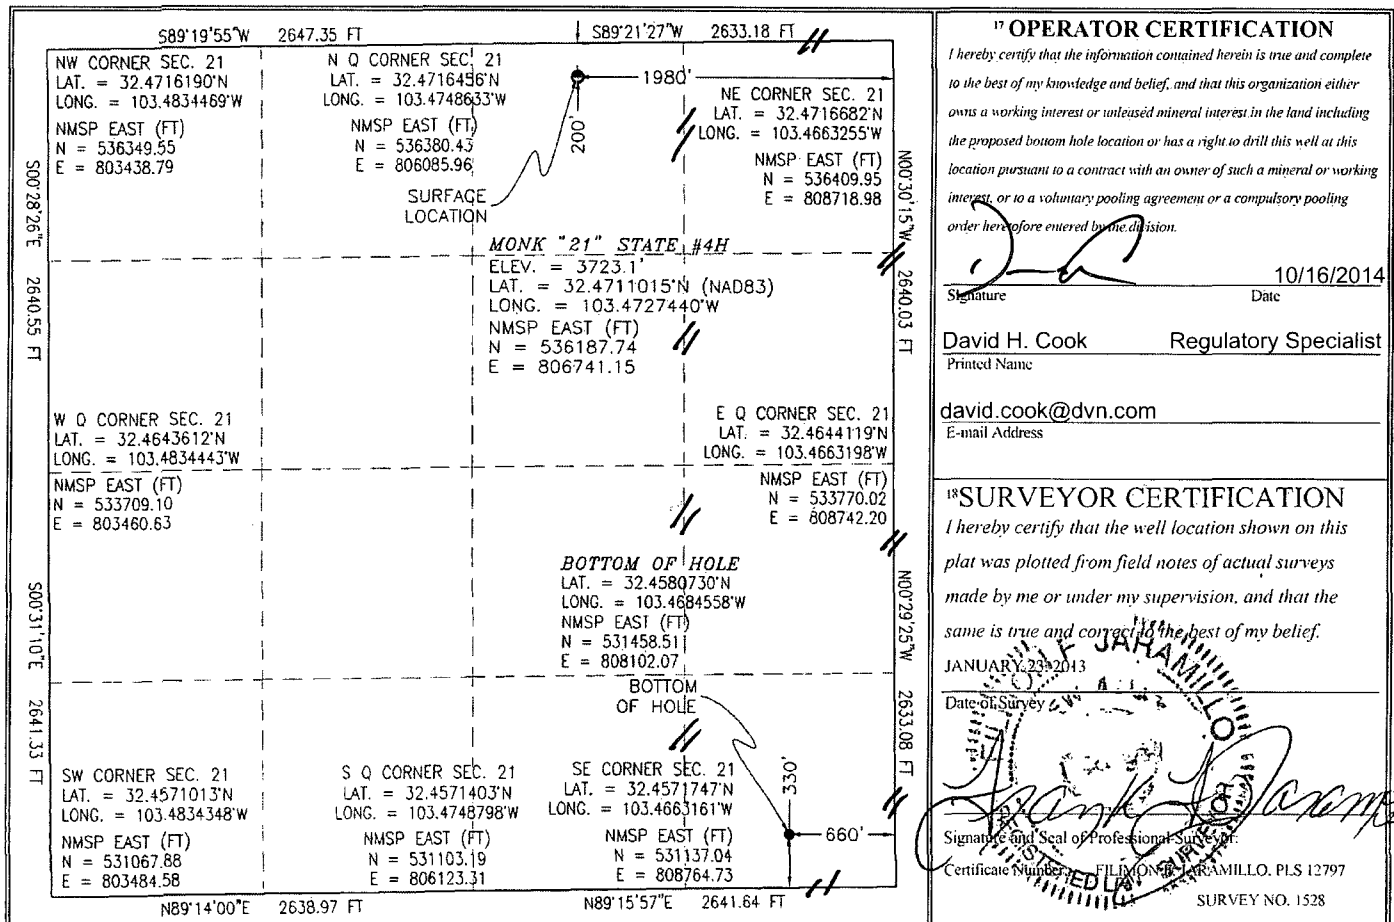 S89°19'55"W 2647.35 FT
S89°21'27"W 2633.18 FT
NW CORNER SEC. 21
LAT. = 32.4716190°N
LONG. = 103.4834469°W
NMSP EAST (FT)
N = 536349.55
E = 803438.79
N Q CORNER SEC. 21
LAT. = 32.4716456°N
LONG. = 103.4748633°W
NMSP EAST (FT)
N = 536380.43
E = 806085.96
1980'
200'
NE CORNER SEC. 21
LAT. = 32.4716682°N
LONG. = 103.4663255°W
NMSP EAST (FT)
N = 536409.95
E = 808718.98
SURFACE
LOCATION
S00°28'26"E 2640.55 FT
N00°30'15"W 2640.03 FT
MONK "21" STATE #4H
ELEV. = 3723.1'
LAT. = 32.4711015°N (NAD83)
LONG. = 103.4727440°W
NMSP EAST (FT)
N = 536187.74
E = 806741.15
W Q CORNER SEC. 21
LAT. = 32.4643612°N
LONG. = 103.4834443°W
NMSP EAST (FT)
N = 533709.10
E = 803460.63
E Q CORNER SEC. 21
LAT. = 32.4644119°N
LONG. = 103.4663198°W
NMSP EAST (FT)
N = 533770.02
E = 808742.20
BOTTOM OF HOLE
LAT. = 32.4580730°N
LONG. = 103.4684558°W
NMSP EAST (FT)
N = 531458.51
E = 808102.07
S00°31'10"E 2641.33 FT
N00°29'25"W 2633.08 FT
BOTTOM
OF HOLE
330'
660'
SW CORNER SEC. 21
LAT. = 32.4571013°N
LONG. = 103.4834348°W
NMSP EAST (FT)
N = 531067.88
E = 803484.58
S Q CORNER SEC. 21
LAT. = 32.4571403°N
LONG. = 103.4748798°W
NMSP EAST (FT)
N = 531103.19
E = 806123.31
SE CORNER SEC. 21
LAT. = 32.4571747°N
LONG. = 103.4663161°W
NMSP EAST (FT)
N = 531137.04
E = 808764.73
N89°14'00"E 2638.97 FT
N89°15'57"E 2641.64 FT
17 OPERATOR CERTIFICATION
I hereby certify that the information contained herein is true and complete
to the best of my knowledge and belief, and that this organization either
owns a working interest or unleased mineral interest in the land including
the proposed bottom hole location or has a right to drill this well at this
location pursuant to a contract with an owner of such a mineral or working
interest, or to a voluntary pooling agreement or a compulsory pooling
order heretofore entered by the division.
10/16/2014
Signature Date
David H. Cook Regulatory Specialist
Printed Name
david.cook@dvn.com
E-mail Address
18 SURVEYOR CERTIFICATION
I hereby certify that the well location shown on this
plat was plotted from field notes of actual surveys
made by me or under my supervision, and that the
same is true and correct to the best of my belief.
JANUARY 23, 2013
Date of Survey
Signature and Seal of Professional Surveyor:
Certificate Number: FILIMON F. JARAMILLO, PLS 12797
SURVEY NO. 1528